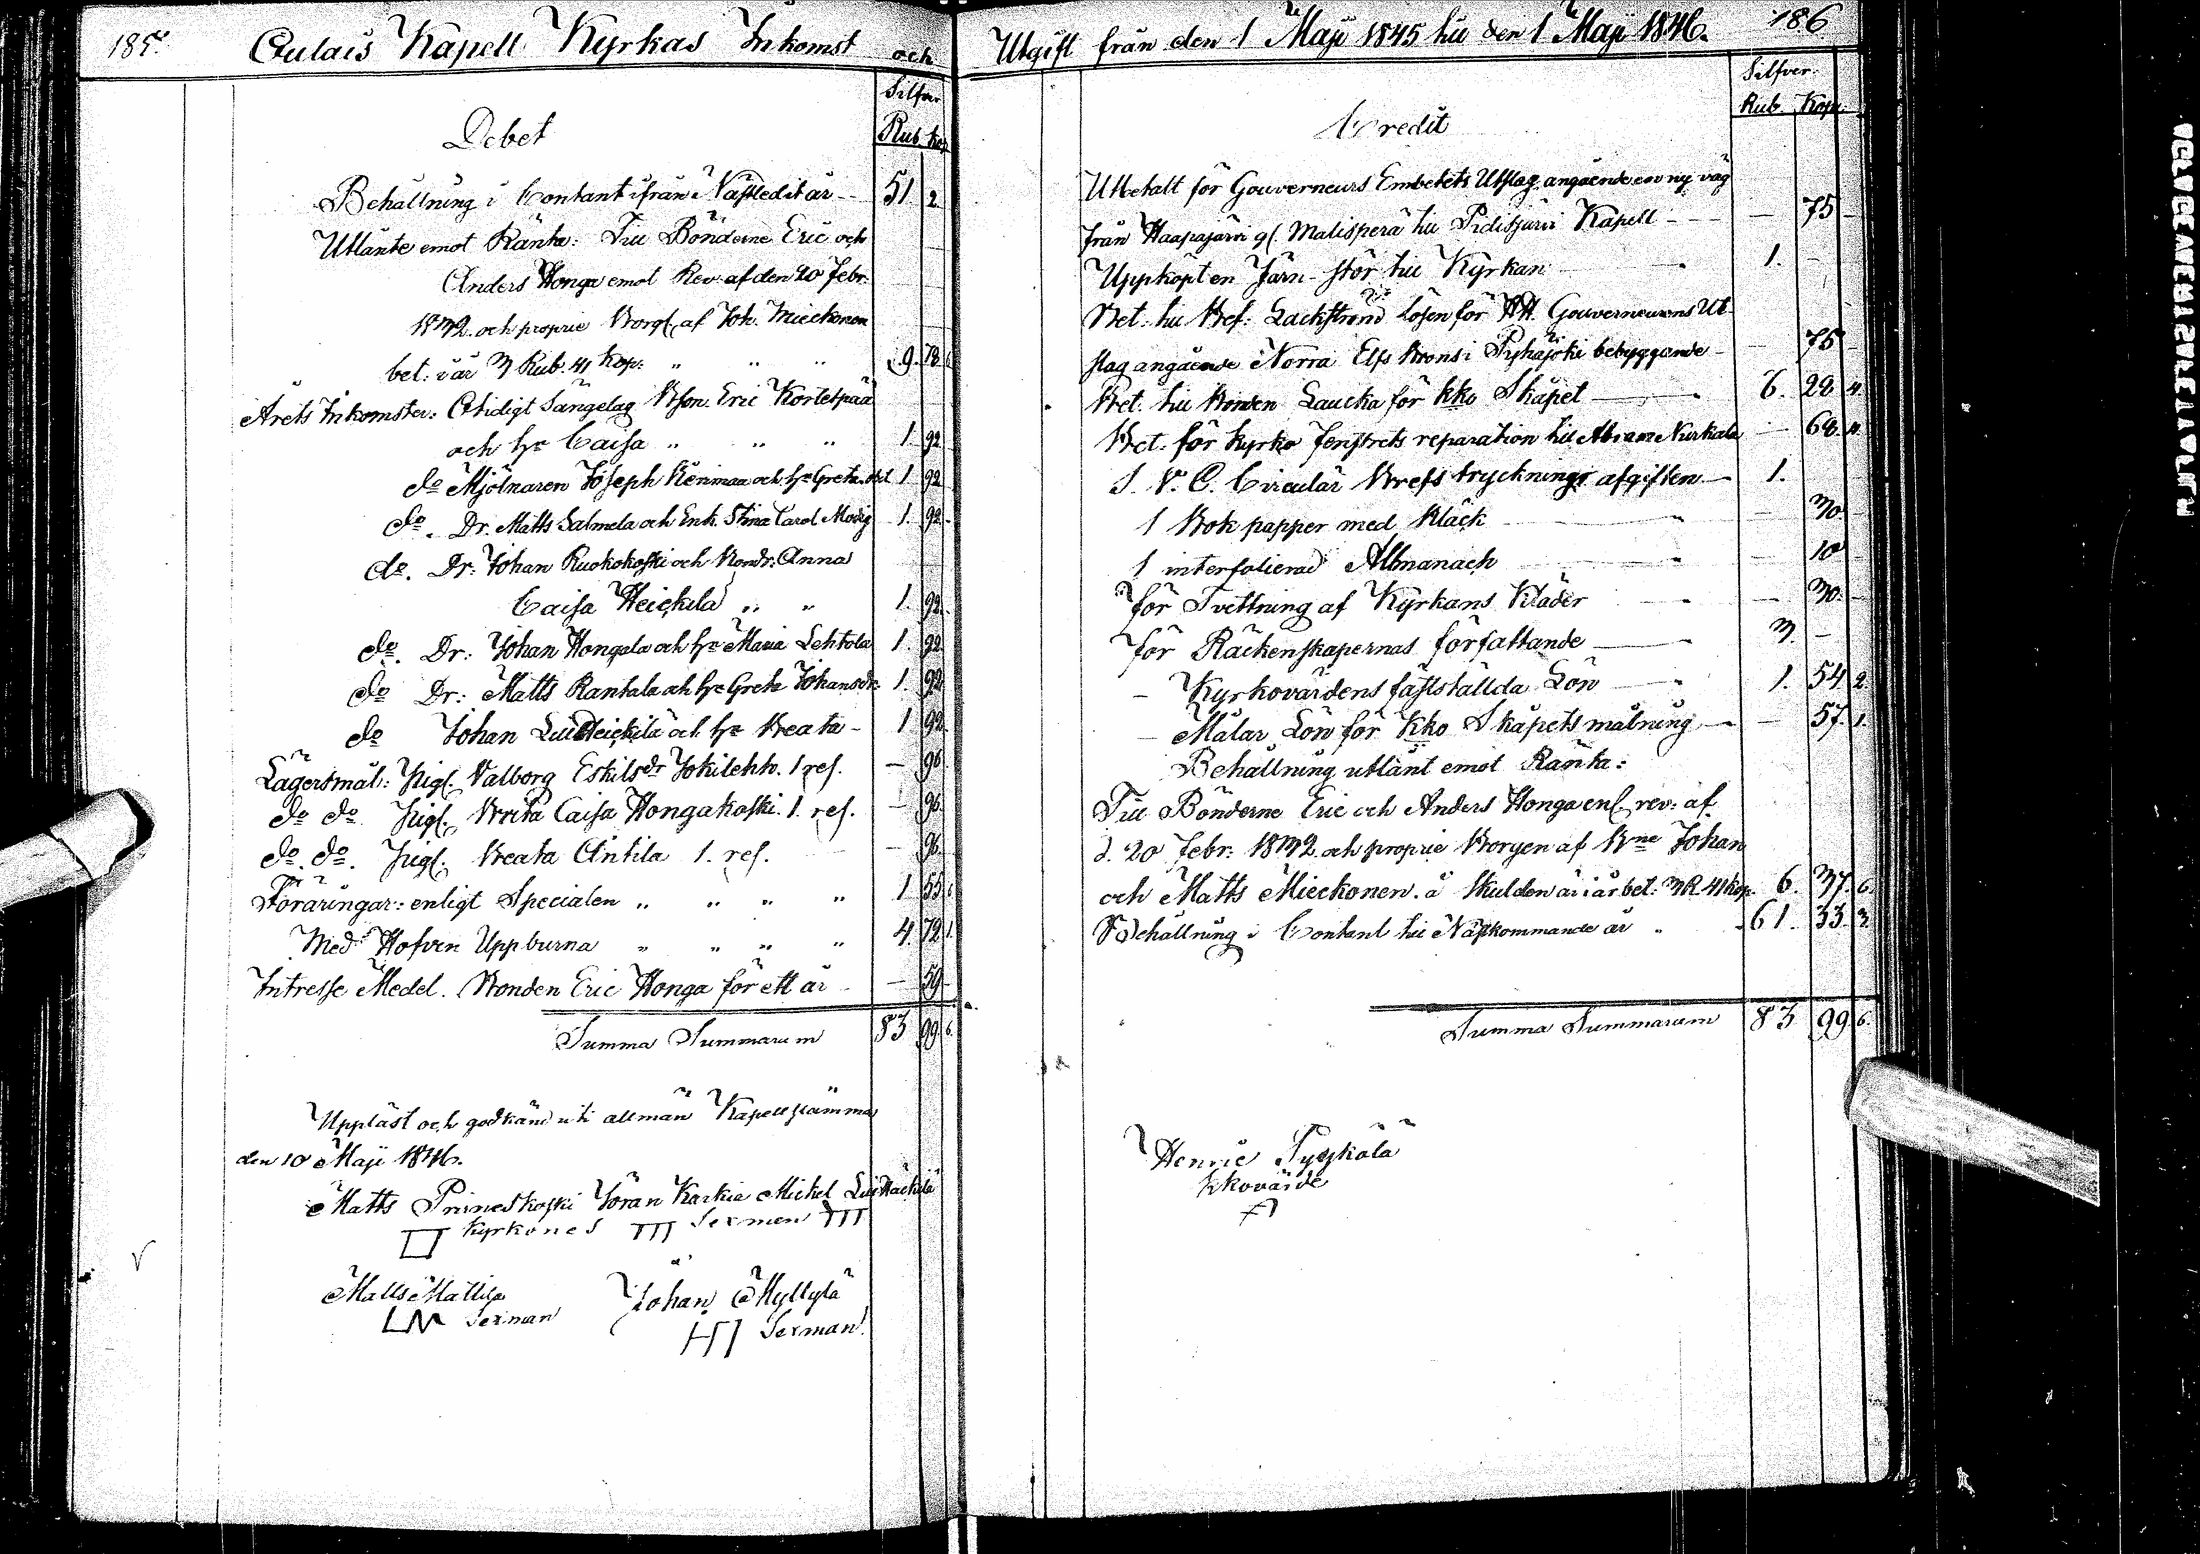 185.
Oulais Kapell Kyrkas Inkomst och
Silfver
Rub. Kop.
Debet
Behållning i Contant ifrån Nästledit år - - 51. 2.
Utlänte emot Ränta: Till Bönderne Eric och
Anders Honga emot Rev. af den 20 Febr.
1832. och proprie Borgl. af Joh. Mieckonen
bet. i år 3 Rub. 41 Kop. " " " 9. 78. 6
Årets Inkomster: Otidigt Sängelag Bson. Eric Kortetpää
och H. Caisa " " " 1. 92.
do Mjölnaren Joseph Kenimaa och H. Greta 1. 92
do. Dr. Matts Salmela och Enk. Stina Carol. Modig 1. 92.
do. Dr: Johan Ruokokoski och Bondr. Anna
Caisa Heickilä " " 1. 92.
do. Dr: Johan Hongala och H. Maria Lehtola 1. 92.
do Dr: Matts Rantala och H. Greta Johansdr. 1. 92
do Johan Heickilä och H. Beata - 1. 92.
Lägersmål: Pigl. Valborg Eskilsdr Jokilehto. 1 res. — 96.
do do Pigl. Brita Caisa Hongakoski. 1. res. — 96.
do. do. Pigl. Beata Antila 1. res. — 96.
Föräringar: enligt Specialen " " " " 1. 55. 6
Med Hofven Uppburna " " " " 4. 72. 1.
Intresse Medel. Bonden Eric Honga för ett år - — 59.
Summa Summarum 83 99. 6.
Uppläst och godkänd uti allmän Kapellstämma
den 10 Maji 1846.
Matts Pirineskoski Jöran Karkia Michel
Kyrkones Sexmen
Matts Mattila Johan Myllylä
Sexman Sexman.
Utgift från den 1 Maji 1845 till den 1 Maji 1846.
186
Silfver.
Rub. Kop.
Credit
Utbetalt för Gouverneurs Embetets Utslag angående en ny väg
från Haapajärvi gl. Malisperä till Pidisjärvi Kapell - - — 75 -
Uppköpt en Järn-stör till Kyrkan 1. -
Bet. till Bef: Lackström lösen för HH. Gouverneurens Ut-
slag angående Norra Elfs Brons i Pyhäjoki bebyggande - — 75 -
Bet. till Bonden Laucka för Kko Skåpet 6. 28. 4.
Bet. för Kyrko fenstrets reparation till Abram Nurkala — 68. 4.
S. V. C. Circulär Brefs tryckningz afgiften - 1.
1 Bok papper med Bläck — 30
1 interfolierad Allmanach — 10
för Tvettning af Kyrkans Kläder — 30.
för Räckenskapernas författande 3. -
- Kyrkovärdens fastställda Lön 1. 54 2
- Målar Lön för Kko Skåpets målning - — 57. 1.
Behållning utlänt emot Ränta:
Till Bönderne Eric och Anders Honga enl. rev. af
d. 20 Febr: 1832 och proprie Borgen af Bne Johan
och Matts Mieckonen. å skulden är i år bet: 3 R. 41 kop. 6. 37. 6.
Behållning i Contant till Nästkommande år 61. 33. 3.
Summa Summarum 83 99 6.
Henric Pyykölä
Kkovärde